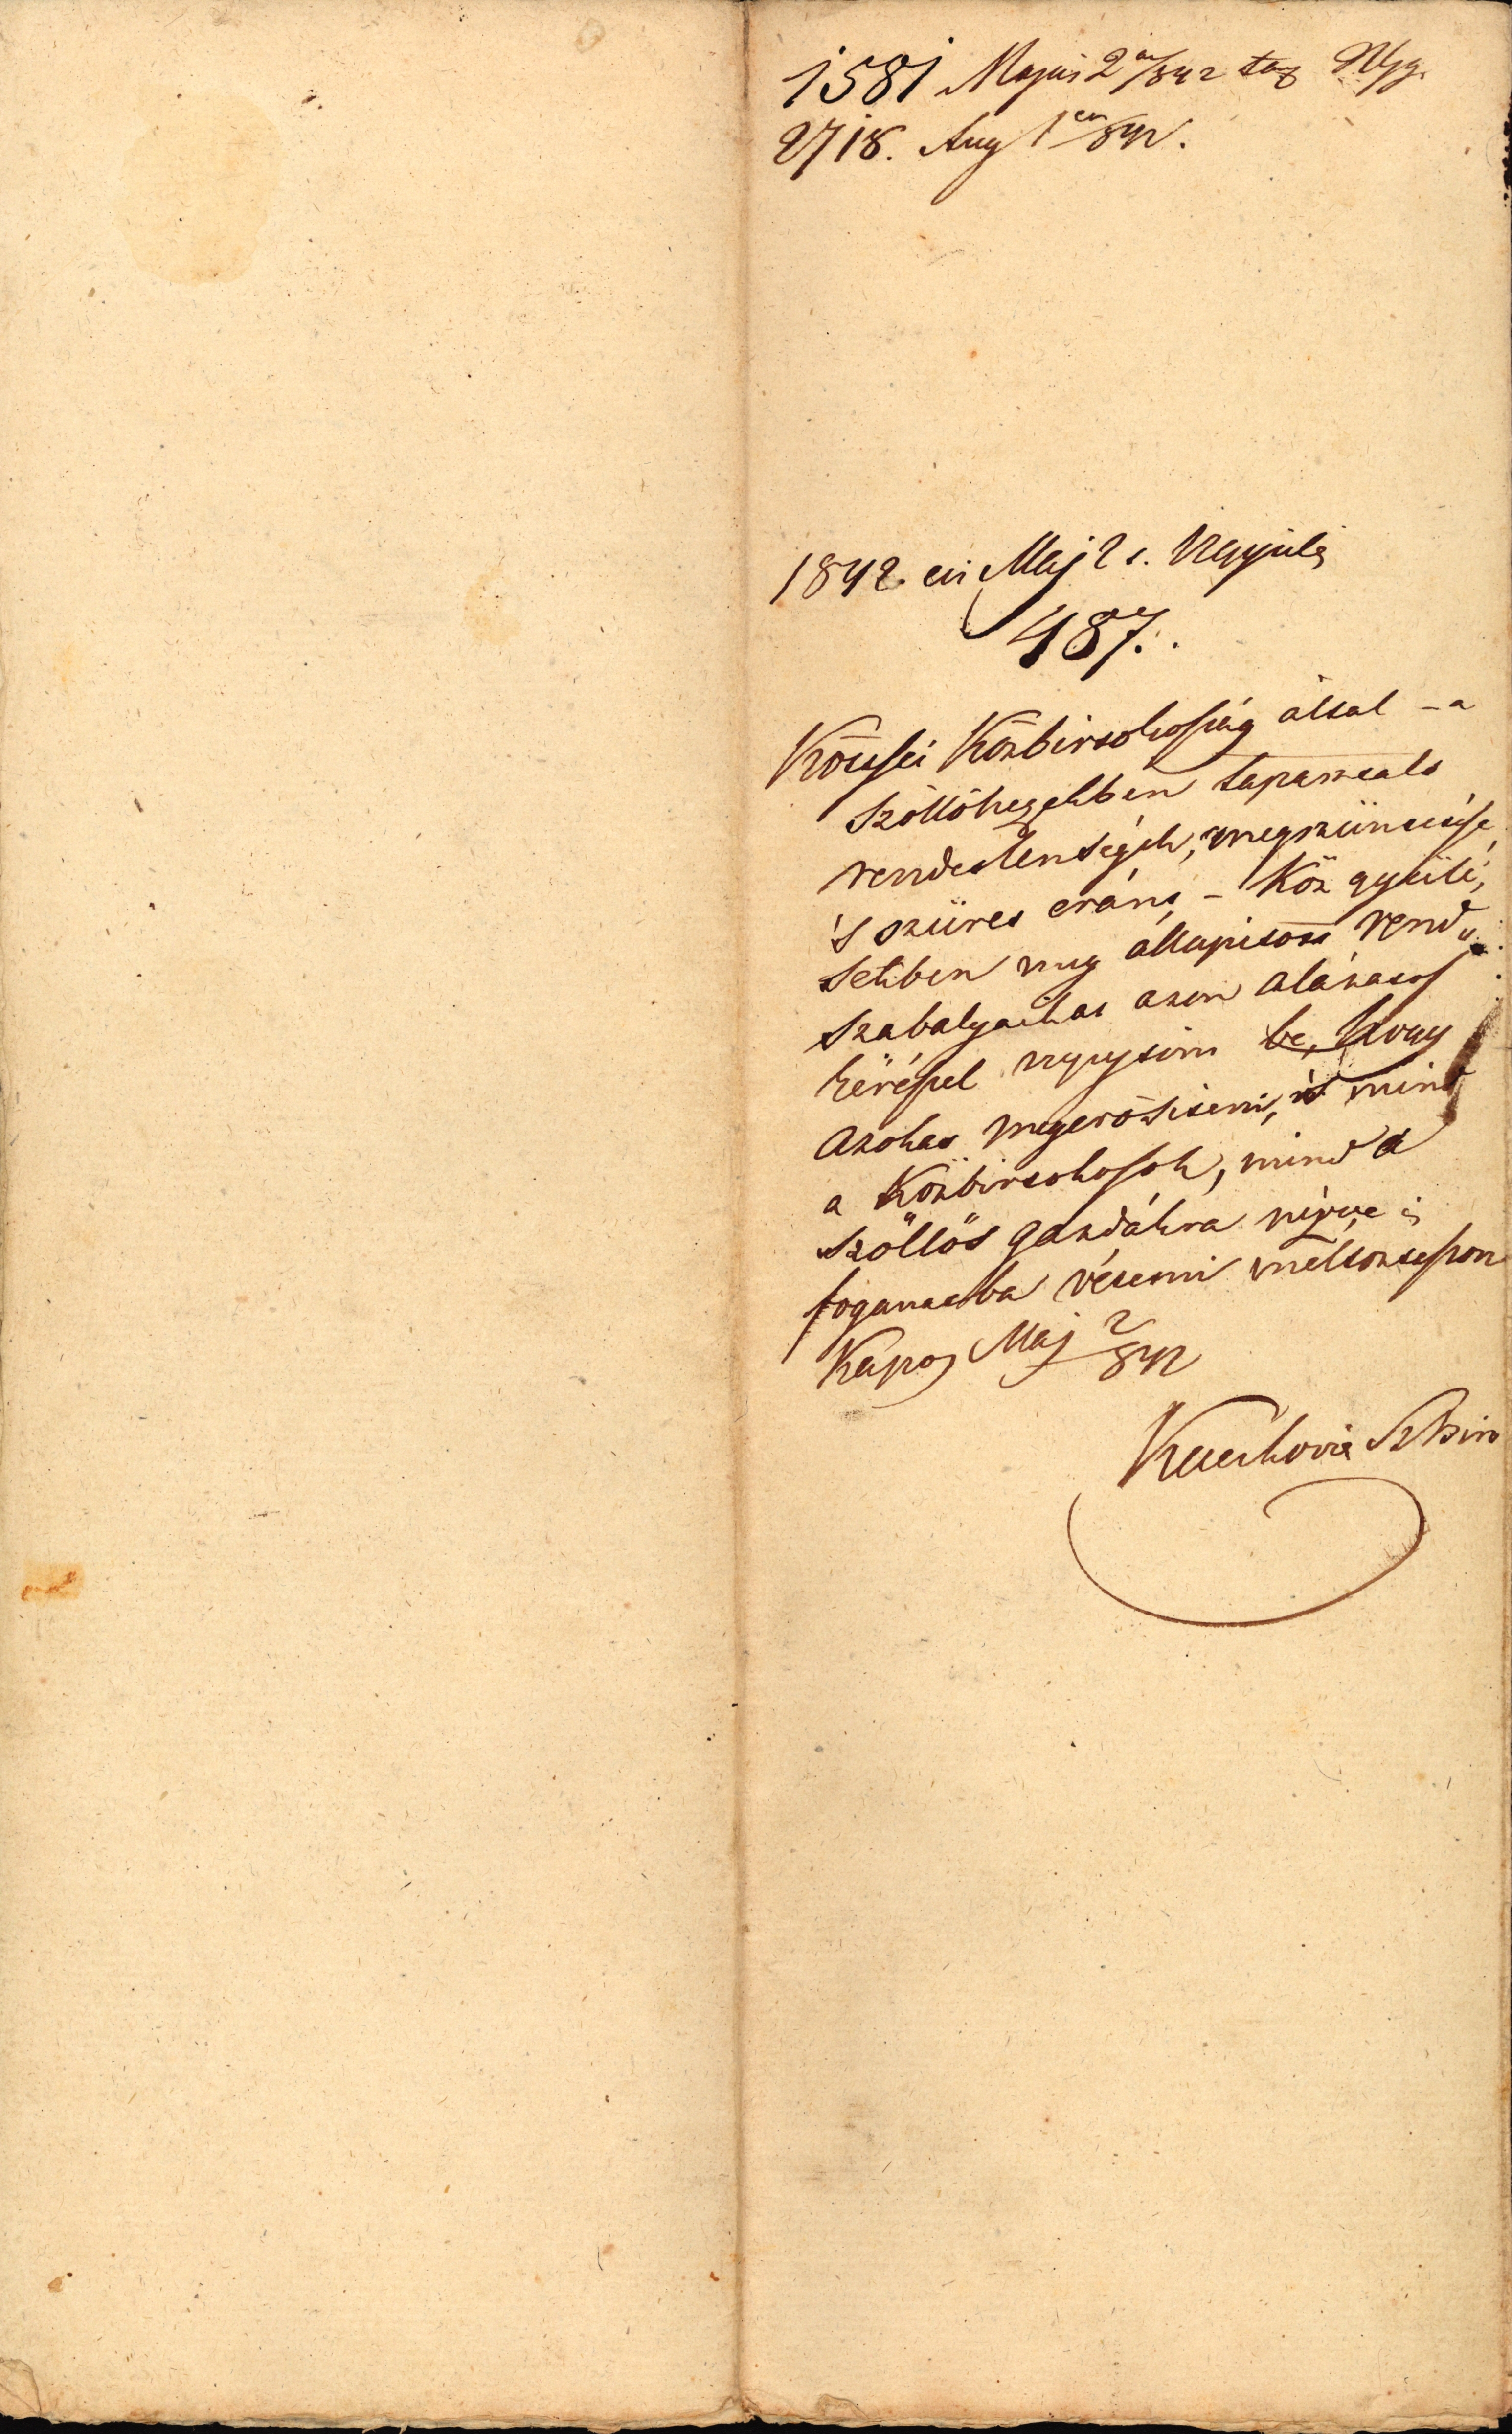 1581 Majus 2án/842 tag Ngy.
2718. Aug 1én/842.
1842. évi Maj 2i. Ngyülés
487.
Köttsei Közbirtokosság által – a
szöllőhegyekben tapasztalt
rendetlenségek, megszüntetése,
's szüret eránt, – Köz gyűlé,
sekben meg állapitott rend
szabályaikat azon alázatos
kéréssel nyujtom be, hogy
azokat megerősiteni, és mind
a Közbirtokosok, mind a
szöllős gazdákra nézve is
foganatba vétetni méltoztasson
Kapos Maj 2/842
Sz Biro